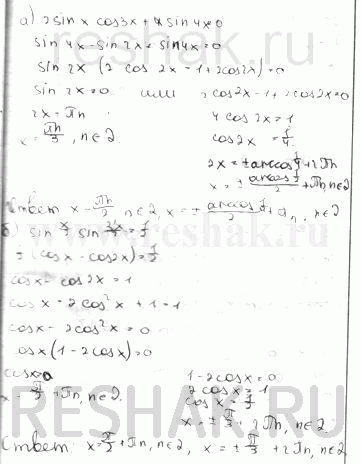 а) 2sin x cos3x + 4 sin 4x=0
sin 4x - sin 2x + sin4x=0
sin 2x (2 cos 2x - 1 + 2cos2x)=0
sin 2x = 0 или 2cos2x-1+2cos2x=0
2x = πn 4 cos 2x = 1
x = πn/2, n∈Z cos2x = 1/4
2x = ±arccos 1/4 + 2πn
x = ± arccos 1/4 / 2 + πn, n∈Z
Ответ x = πn/2, n∈Z, x = ± arccos 1/4 / 2 + πn, n∈Z
б) sin x/2 sin 3x/2 = 1/2
(cos x - cos2x) = 1/2
cosx - cos 2x = 1
cosx - 2cos²x + 1 = 1
cosx - 2cos²x = 0
cosx (1-2cosx)=0
cosx=0 1-2cosx=0
x = π/2 + πn, n∈Z 2cosx = 1
cos x = 1/2
x = ± π/3 + 2πn, n∈Z
Ответ: x = π/2 + πn, n∈Z, x = ± π/3 + 2πn, n∈Z
RESHAK.RU